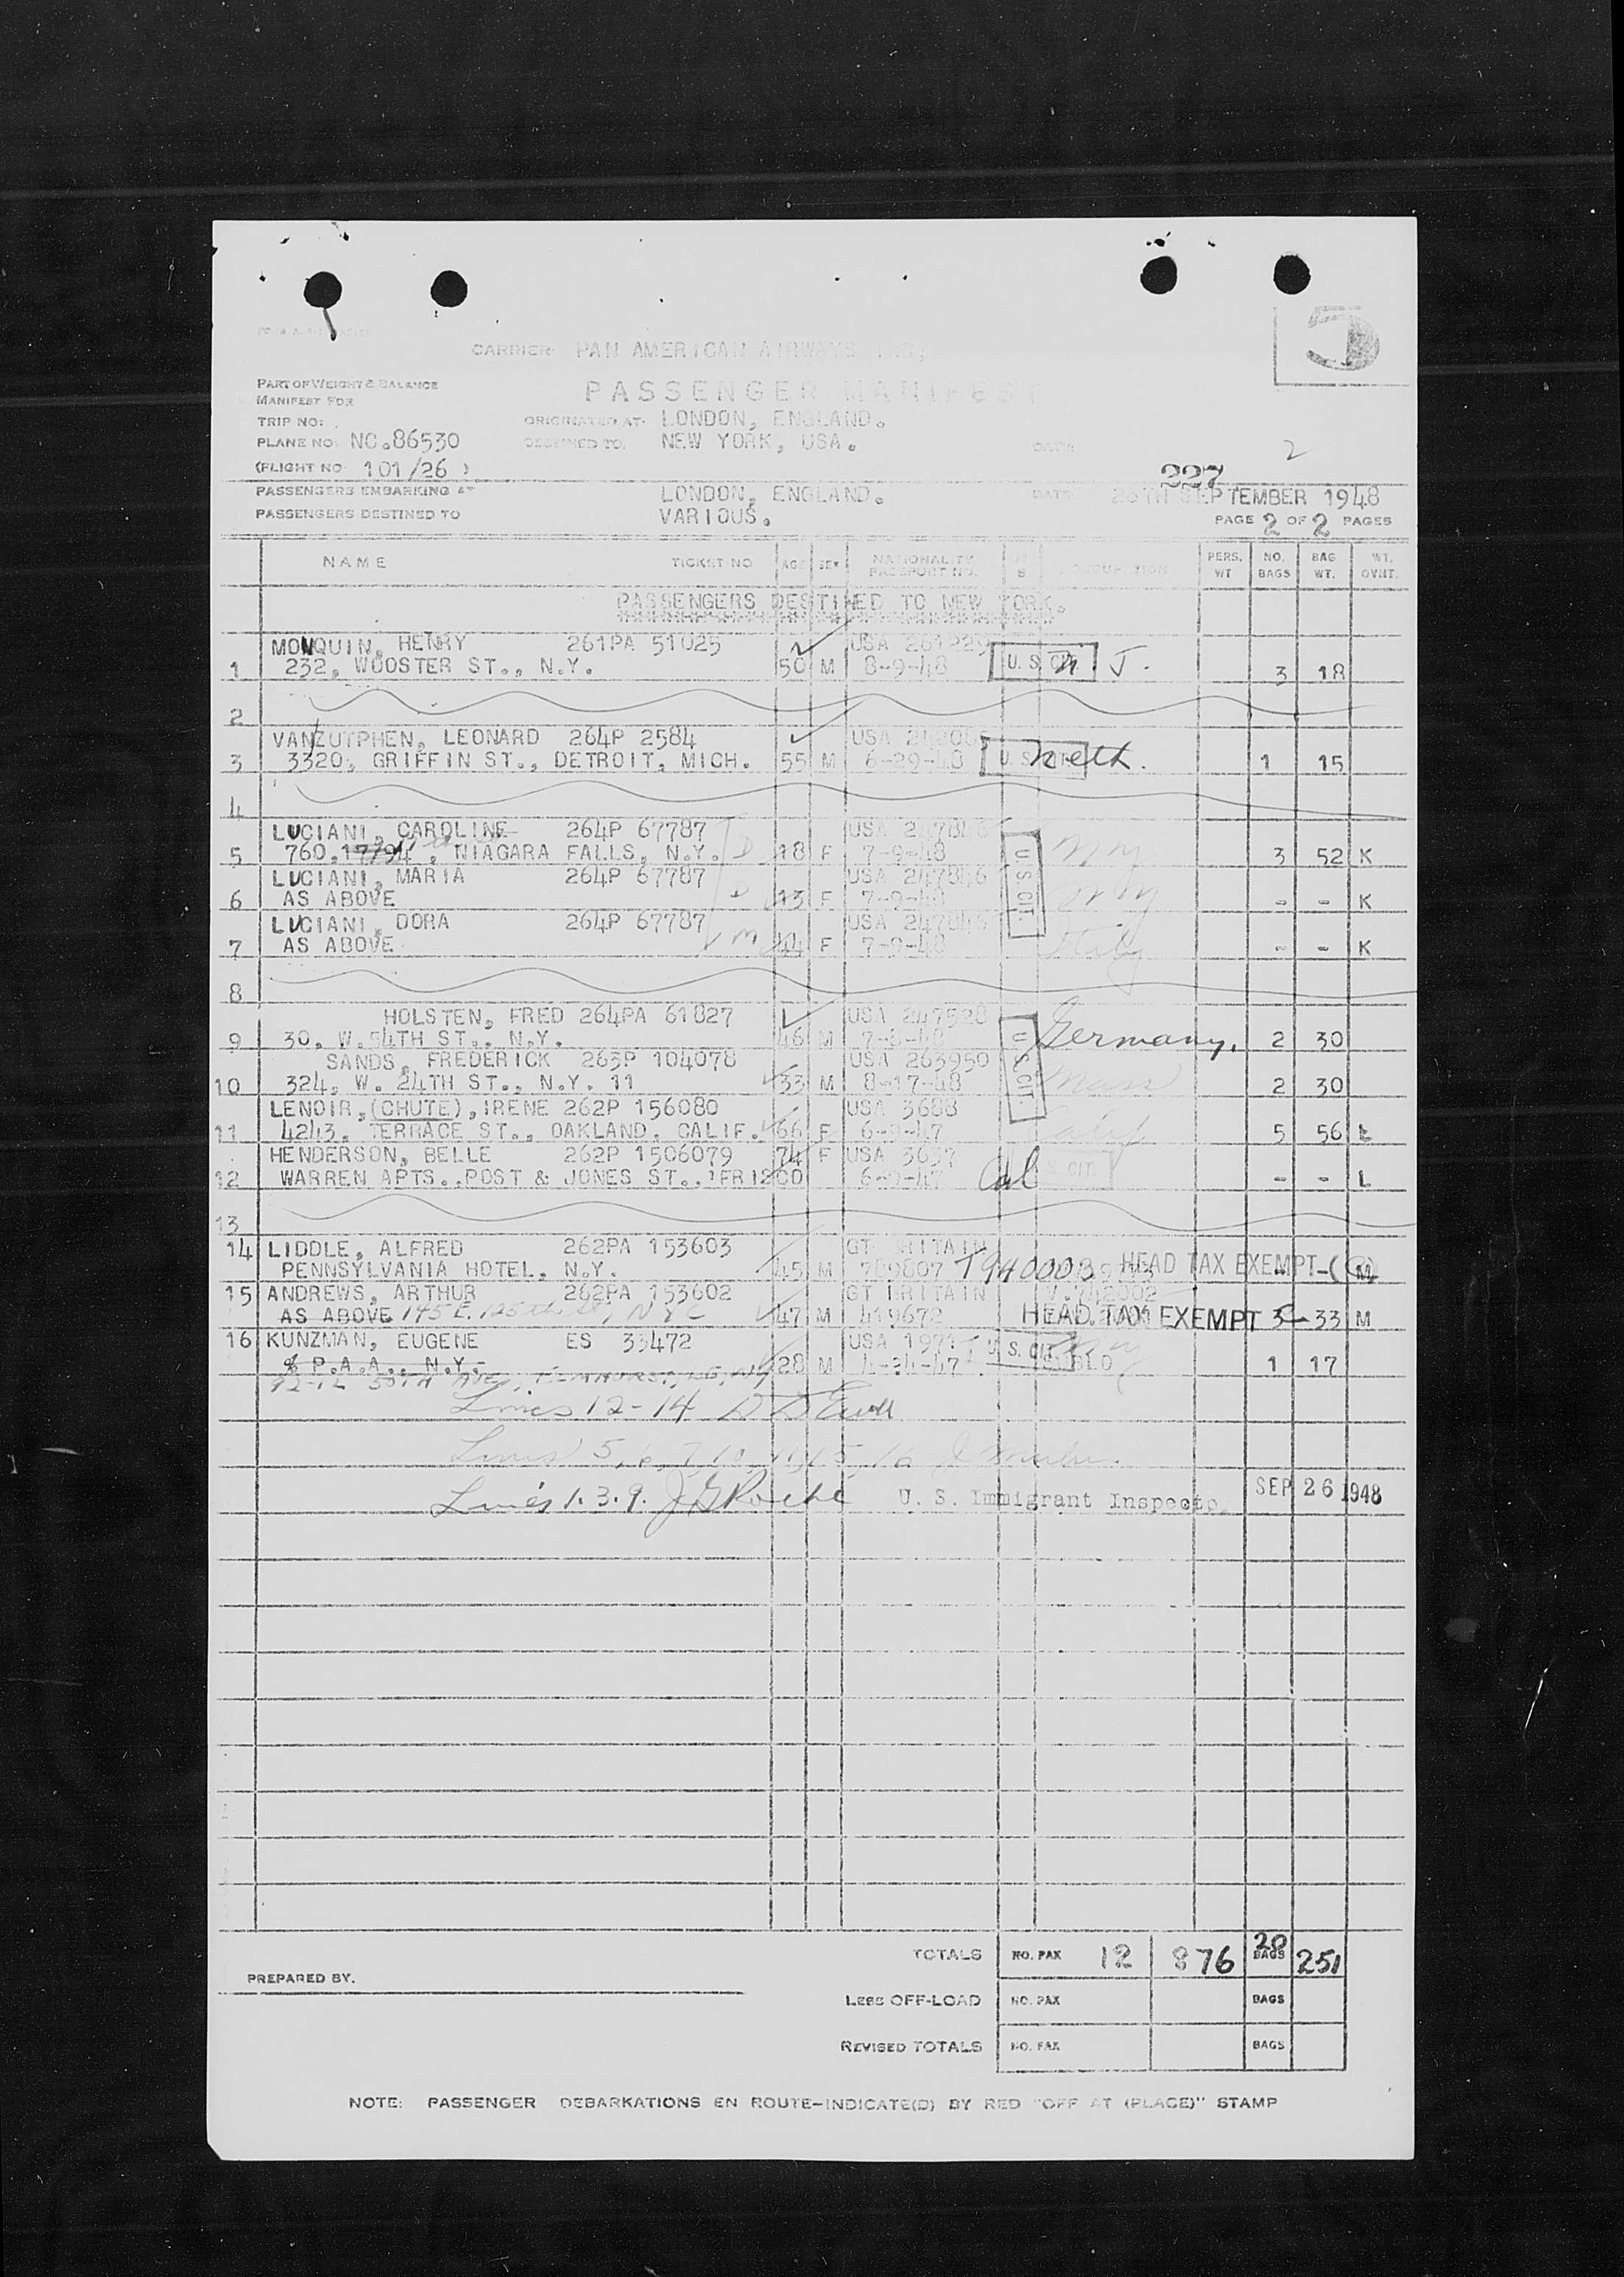 5
CARRIER PAN AMERICAN AIRWAYS INC.
PART OF WEIGHT & BALANCE
MANIFEST FOR
PASSENGER MANIFEST
TRIP NO:
ORIGINATED AT: LONDON, ENGLAND.
PLANE NO: NC.86530
DESTINED TO: NEW YORK, USA.
DATE:
2
(FLIGHT NO 101/26 )
227
PASSENGERS EMBARKING AT LONDON, ENGLAND. DATE: 26TH SEPTEMBER 1948
PASSENGERS DESTINED TO VARIOUS.
PAGE 2 OF 2 PAGES
NAME TICKET NO AGE SEX NATIONALITY PASSPORT NO. OCCUPATION PERS. WT NO. BAGS BAG WT. WT. OVHT.
PASSENGERS DESTINED TO NEW YORK.
MONQUIN, HENRY 261PA 51025 USA 261229
1 232, WOOSTER ST., N.Y. 50 M 8-9-48 U. S. CIT. N. J. 3 18
2
VANZUTPHEN, LEONARD 264P 2584 USA
3 3320, GRIFFIN ST., DETROIT, MICH. 55 M 6-29-48 U. S. CIT. Neth. 1 15
4
LUCIANI, CAROLINE 264P 67787 USA 247846
5 760, , NIAGARA FALLS, N.Y. D 18 F 7-9-48 U. S. CIT. N Y 3 52 K
LUCIANI, MARIA 264P 67787 USA 247846
6 AS ABOVE D 13 F 7-9-48 N Y - - K
LUCIANI, DORA 264P 67787 USA 247846
7 AS ABOVE M 44 F 7-9-48 Italy - - K
8
HOLSTEN, FRED 264PA 61827 USA 247528
9 30, W.54TH ST., N.Y. 46 M U. S. CIT. Germany. 2 30
SANDS, FREDERICK 263P 104078 USA 263950
10 324, W. 24TH ST., N.Y. 11 33 M 8-17-48 Mass 2 30
LENOIR,(CHUTE),IRENE 262P 156080 USA 3688
11 4243, TERRACE ST., OAKLAND, CALIF. 66 F 6-9-47 Calif 5 56 L
HENDERSON, BELLE 262P 1506079 74 F USA 3637
12 WARREN APTS.,POST & JONES ST.,'FRISCO 6-9-47 Cal U. S. CIT. - - L
13
14 LIDDLE, ALFRED 262PA 153603 GT BRITAIN
PENNSYLVANIA HOTEL, N.Y. 45 M 789807 T940003 HEAD TAX EXEMPT - ( M
15 ANDREWS, ARTHUR 262PA 153602 GT BRITAIN
AS ABOVE 145 E. 125th St, N Y C 47 M 419672 HEAD TAX EXEMPT 3 33 M
16 KUNZMAN, EUGENE ES 33472 USA 1971 U. S. CIT.
% P.A.A., N.Y. 28 M 4-24-47 N Y 1 17
Lines 12-14
Lines 5, 6, 7, 10, 11, 15, 16
Lines 1. 3. 9. J G Roche U. S. Immigrant Inspector SEP 26 1948
TOTALS NO. PAX 12 876 20 BAGS 251
PREPARED BY.
LESS OFF-LOAD NO. PAX BAGS
REVISED TOTALS NO. PAX BAGS
NOTE: PASSENGER DEBARKATIONS EN ROUTE-INDICATE(D) BY RED "OFF AT (PLACE)" STAMP